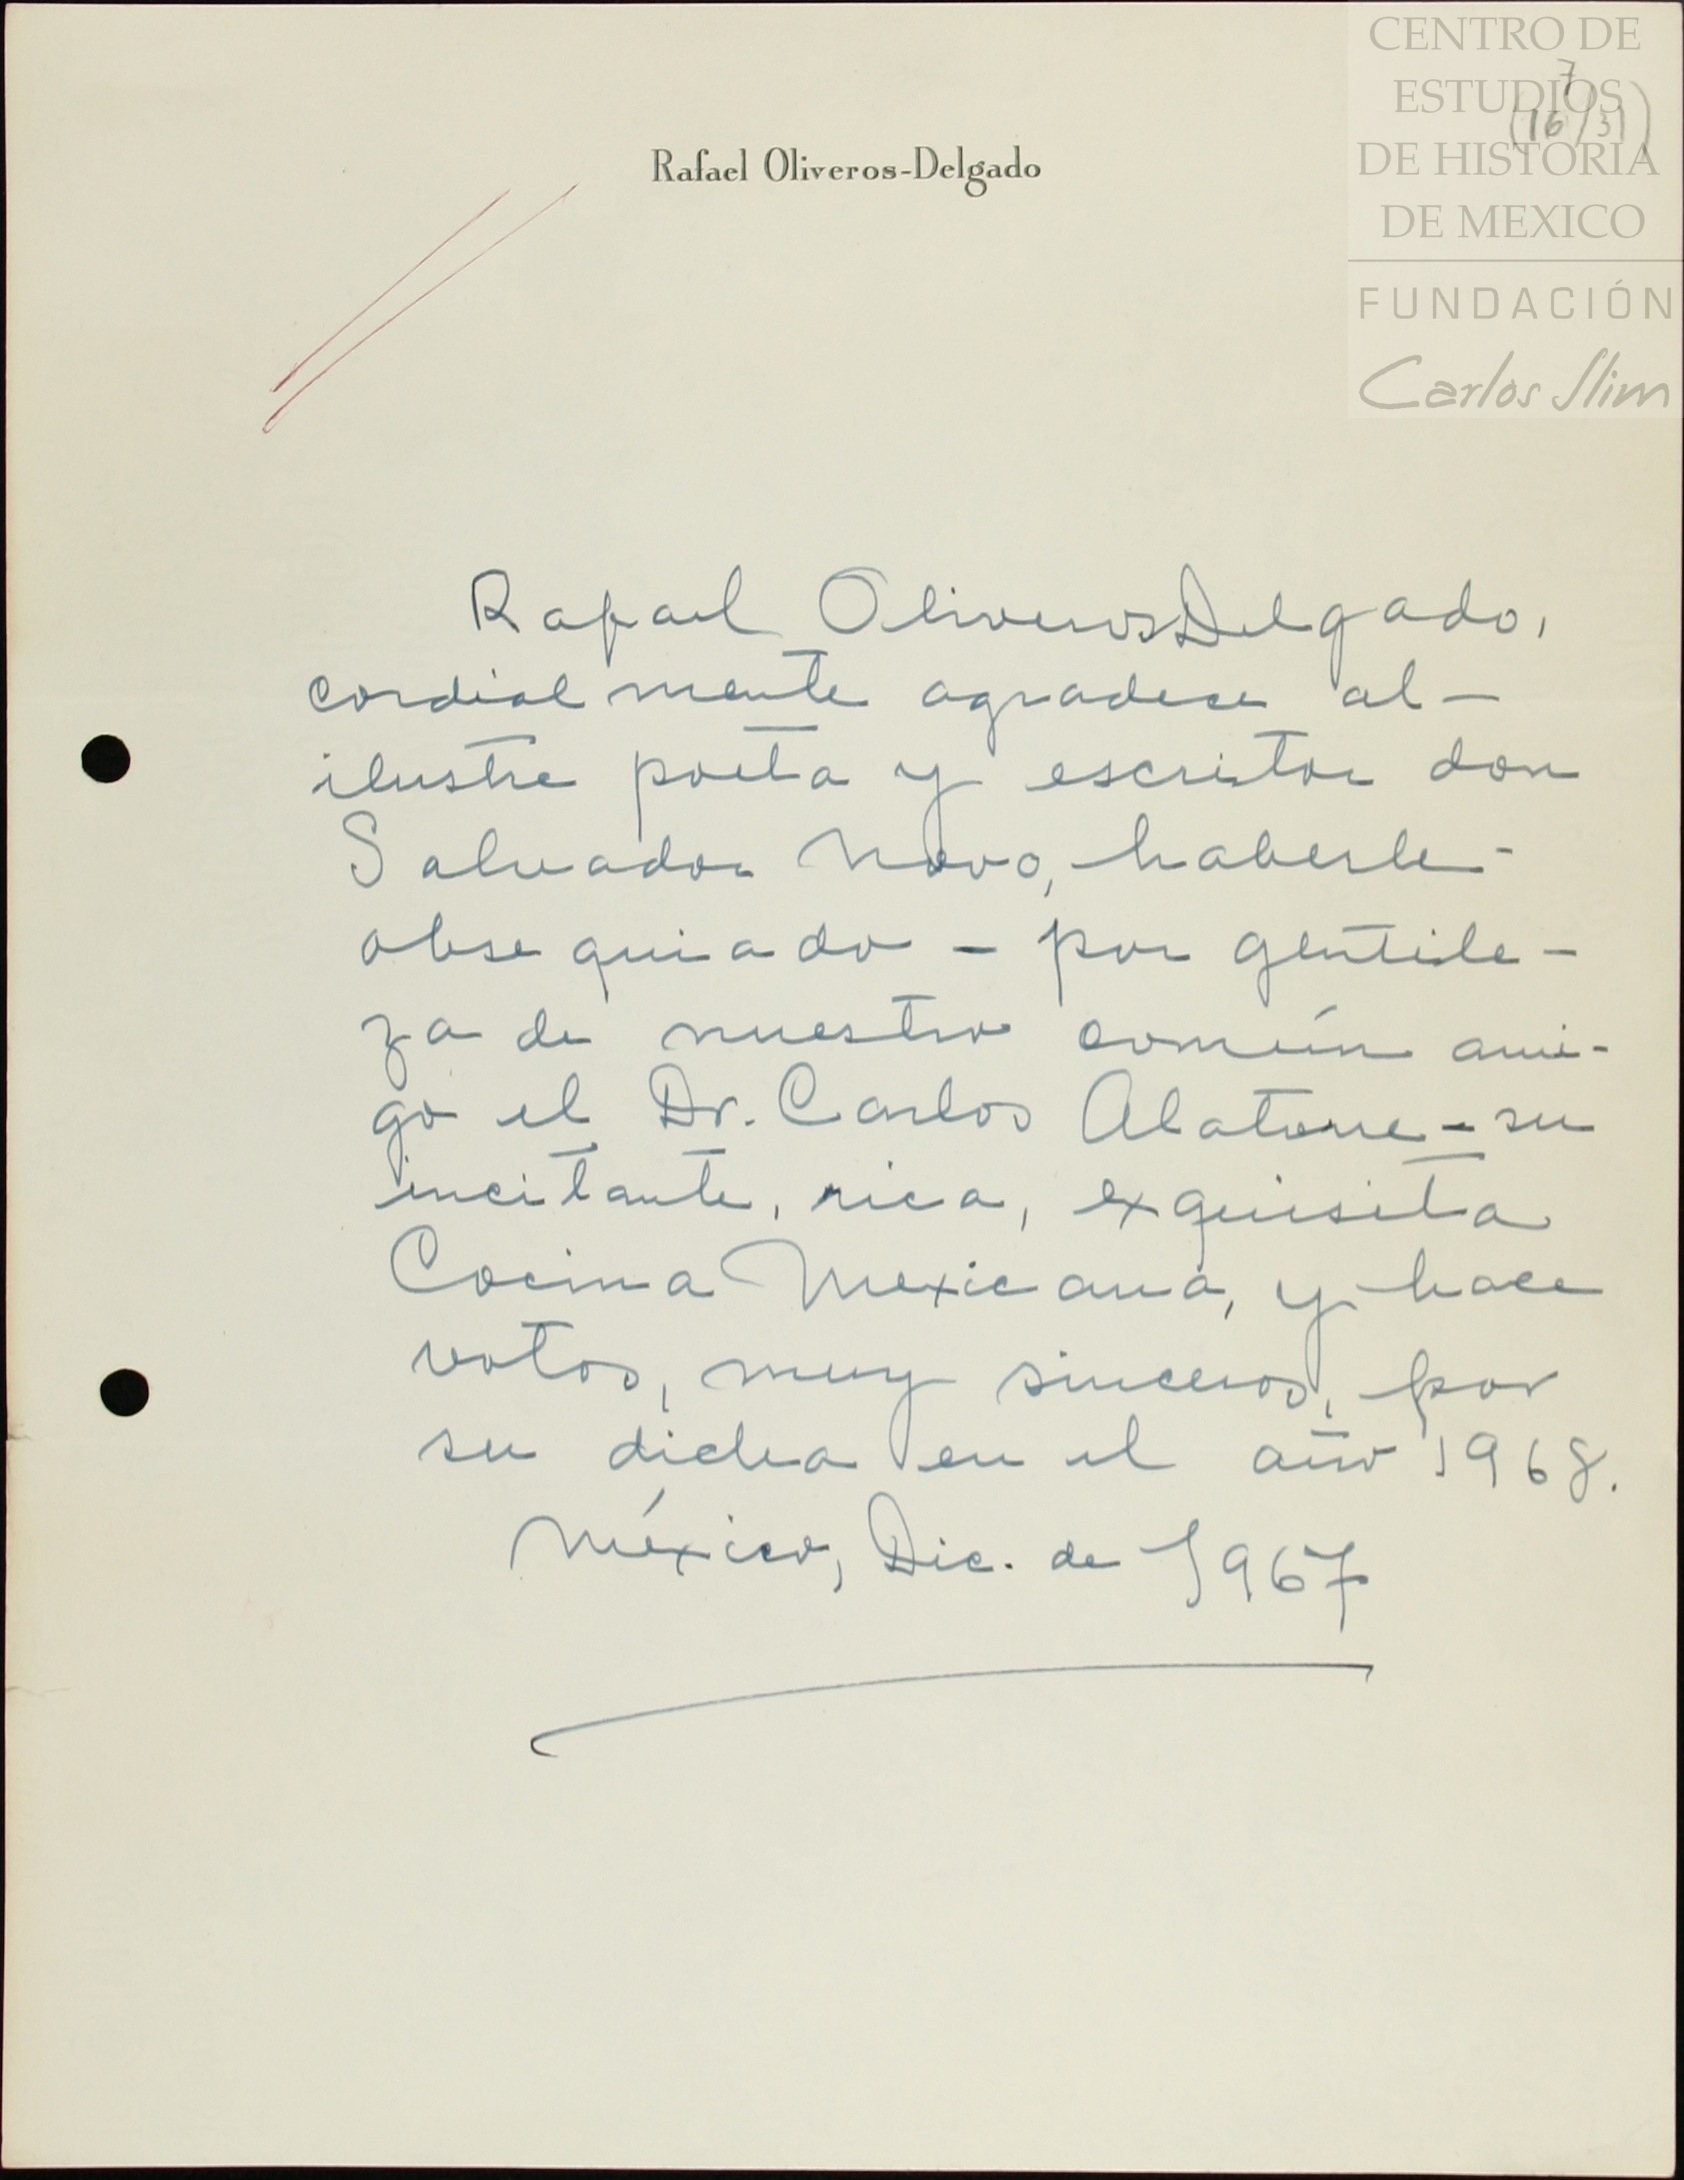 CENTRO DE
ESTUDIOS
DE HISTORIA
DE MEXICO
FUNDACIÓN
Carlos Slim
7
(16/31)
Rafael Oliveros-Delgado
Rafael Oliveros Delgado,
cordialmente agradece al-
ilustre poeta y escritor don
Salvador Novo, haberle-
obsequiado - por gentile-
za de nuestro común ami-
go el Dr. Carlos Alatorre - su
incitante, rica, exquisita
Cocina Mexicana, y hace
votos, muy sinceros, por
su dicha en el año 1968.
México, Dic. de 1967